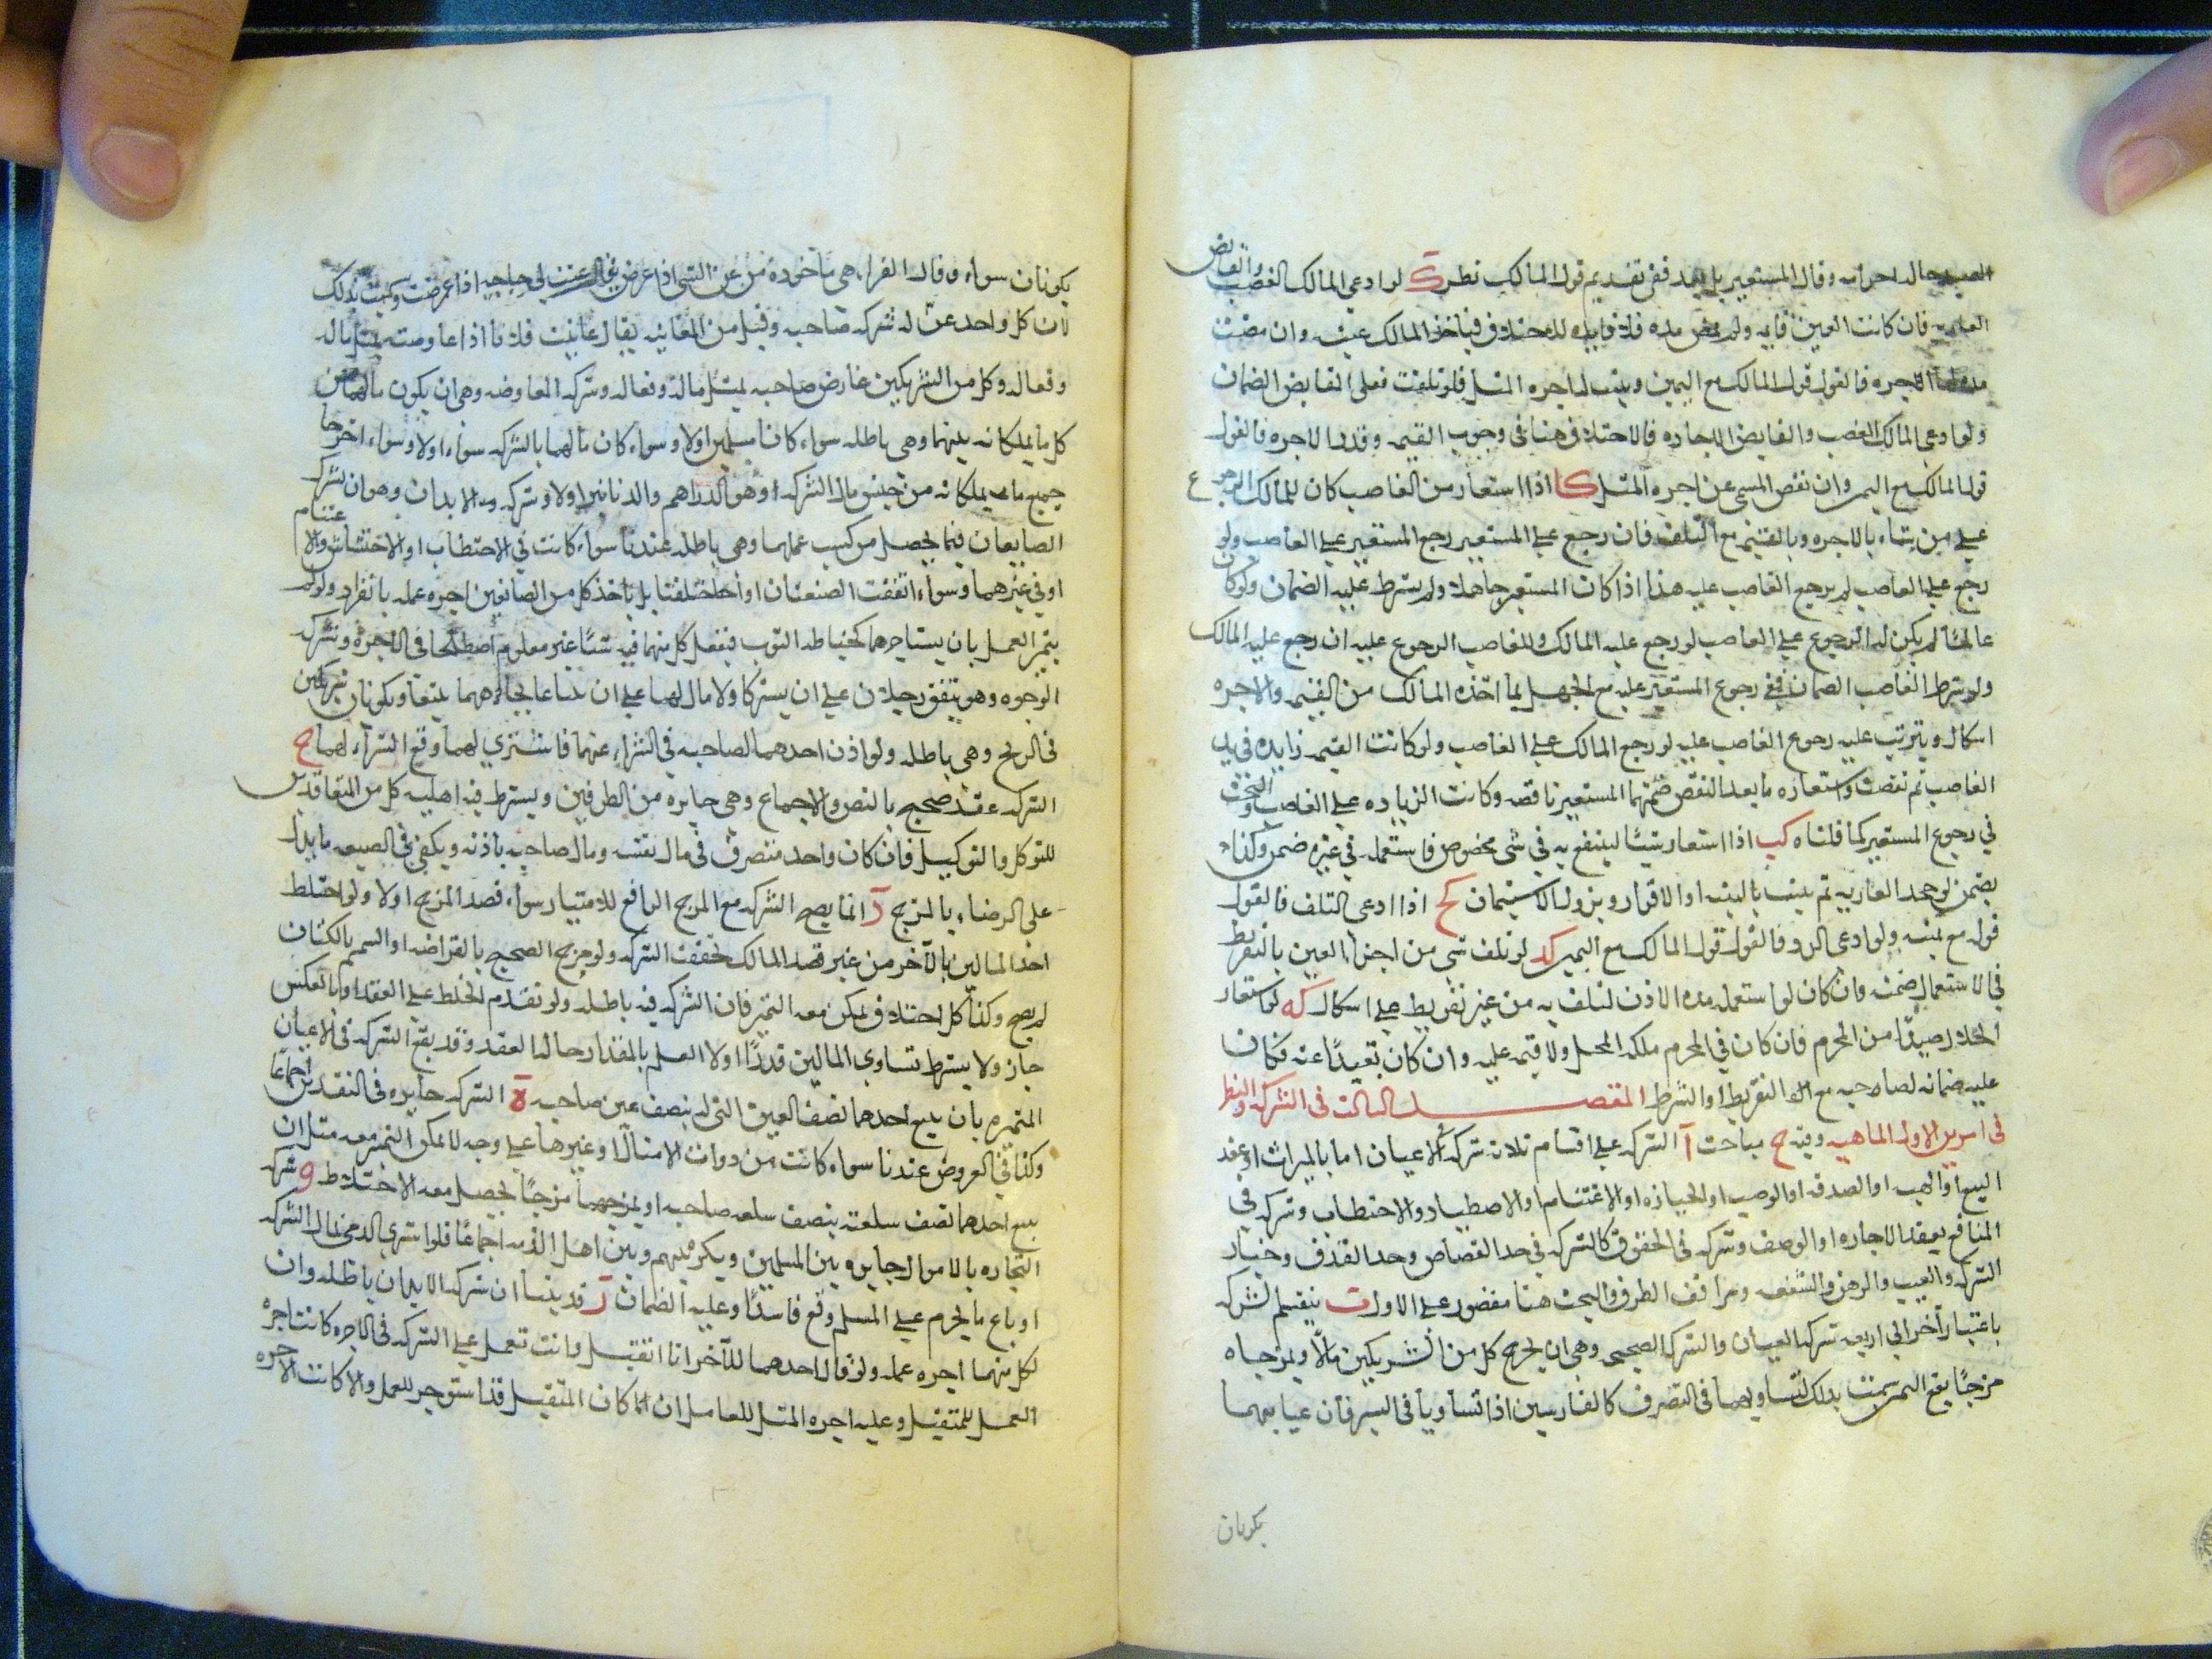 الصيد حال احرامه وقال المستعير بل بعد ففى تقديم قول المالك نظر ك لو ادعى المالك الغصب والقابض
العاريه فان كانت العين قايمه ولم تمض مده فلا فايده للاختلاف فياخذ المالك عينه وان مضت
مده لها اجره فالقول قول المالك مع اليمين ويثبت له اجره المثل فلو تلفت فعلى القابض الضمان
ولو ادعى المالك الغصب والقابض الاجاره فالاختلاف هنا فى وجوب القيمه وقدر الاجره فالقول
قول المالك مع اليمين وان نقص المسمى عن اجره المثل كا اذا استعار من الغاصب كان للمالك الرجوع
على من شاء بالاجره وبالقيمه مع التلف فان رجع على المستعير رجع المستعير على الغاصب ولو
رجع على الغاصب لم يرجع الغاصب عليه هذا اذا كان المستعير جاهلا ولم يشترط عليه الضمان ولو كان
عالما لم يكن له الرجوع على الغاصب لو رجع عليه المالك وللغاصب الرجوع عليه ان رجع عليه المالك
ولو شرط الغاصب الضمان ففى رجوع المستعير عليه مع الجهل بما اخذه المالك من القيمه والاجره
اشكال ويترتب عليه رجوع الغاصب عليه لو رجع المالك على الغاصب ولو كانت القيمه زايده فى يد
الغاصب ثم نقصت واستعاره ما بعد النقص ضمنها المستعير ناقصه وكانت الزياده على الغاصب والبحث
في رجوع المستعير كما قلناه كب اذا استعار شيئا لينتفع به في شى مخصوص فاستعمله في غيره ضمن وكذا
يضمن لو جحد العاريه ثم يثبت بالبينه او الاقرار ويزول الاستيمان كج اذا ادعى التلف فالقول
قوله مع يمينه ولو ادعى الرد فالقول قول المالك مع اليمين كد لو تلف شى من اجزاء العين بالتفريط
في الاستعمال ضمنه وان كان لو استعمله مده الاذن لتلف به من غير تفريط على اشكال كه لو استعار
الحلال صيدًا من المحرم فان كان في الحرم ملكه المحل ولا قيمه عليه وان كان بعيدًا عنه فكان
عليه ضمانه لصاحبه مع التفريط او الشرط المقصد الثالث فى الشركه والنظر
فى امرين الاول الماهيه وفيه ح مباحث آ الشركه على اقسام ثلاثه شركه فى الاعيان اما بالميراث او عقد
البيع او الهبه او الصدقه او الوصيه او الحيازه او الاغتنام او الاصطياد والاحتطاب وشركه في
المنافع بعقد الاجاره او الوصيه وشركه فى الحقوق كالشركه فى حد القصاص وحد القذف وخيار
الشركه والعيب والرهن والشفعه ومرافق الطرق والبحث هنا مقصور على الاول ب ينقسم الشركه
باعتبار آخر الى اربعه شركه العنان والشركه الصحيحه وهى ان يخرج كل من الشريكين مالًا ويمزجاه
مزجًا يقع التمييز سميت بذلك لتساويهما فى التصرف كالفارسين اذا تساويا فى السير فان عنانهما
يكونان
يكونان سواء وقال الفراء هى ماخوذه من عن الشى اذا عرض يقال عنت لي حاجه اذا عرضت وسميت بذلك
لان كل واحد عن له شركه صاحبه وقيل من المعانيه يقال عانيت فلانا اذا عارضته بمثل ماله
وفعاله وكل من الشريكين عارض صاحبه بمثل ماله وفعاله وشركه المفاوضه وهى ان يكون مالهما من
كل ما يملكانه بينهما وهى باطله سواء كانا مسلمين اولا وسواء كان مالهما بالشركه سواء اولا وسواء اخرجا
جميع ما يملكانه من جنس مال الشركه وهو الدراهم والدنانير اولا وشركه الابدان وهو ان يشترك
الصانعان فيما يحصل من كسب عملهما وهى باطله عندنا سواء كانت في الاحتطاب او الاحتشاش والاغتنام
او في غيرهما وسواء اتفقت الصنعتان او اختلفتا بل ياخذ كل من الصانعين اجره عمله بانفراده ولو لم
يتميز العمل بان يستاجرهما لخياطه الثوب فيفعل كل منهما فيه شيئا غير معلوم اصطلحا في الاجره وشركه
الوجوه وهو يتفق رجلان على ان يشتركا ولا مال لهما على ان يبتاعا بجاههما يبتعا ويكونان شريكين
فى الربح وهى باطله ولو اذن احدهما لصاحبه في الشراء عنهما فاشترى لهما وقع الشراء لهما ج
الشركه عقد صحيح بالنص والاجماع وهى جايزه من الطرفين ويشترط فيه اهليه كل من المتعاقدين
للتوكل والتوكيل فان كان واحد متصرف فى مال نفسه ومال صاحبه باذنه ويكفى فى الصيغه ما يدل
على الرضاء بالمزج د انما يصح الشركه مع المزج الرافع للامتياز سواء قصد المزج اولا ولو اختلط
احد المالين بالآخر من غير قصد المالك تحققت الشركه ولو مزج الصحيح بالقراضه او السمسم بالكتان
لم يصح وكذا كل اختلاف يمكن معه التميز فان الشركه فيه باطله ولو تقدم الخلط على العقد او بالعكس
جاز ولا يشترط تساوى المالين قدرًا اولا العلم بالمقدار حاله العقد وقد يقع الشركه فى الاعيان
المتميزه بان يبيع احدهما نصف العين التى له بنصف عين صاحبه ه الشركه جايزه فى النقدين اجماعًا
وكذا في العروض عندنا سواء كانت من ذوات الامثال او غيرها على وجه لا يمكن التميز معه مثل ان
يبيع احدهما نصف سلعته بنصف سلعه صاحبه او يمزجهما مزجًا يحصل معه الاختلاط و شركه
التجاره بالاموال جايزه بين المسلمين ويكره بينهم وبين اهل الذمه اجماعًا فلو اشترى الذمى بمال الشركه
او باع ما يحرم على المسلم وقع فاسدًا وعليه الضمان ز قد بينا ان شركه الابدان باطله وان
لكل منهما اجره عمله ولو قال احدهما للآخر انا اتقبل وانت تعمل على الشركه فى الاجره كانت اجره
العمل للمتقبل وعليه اجره المثل للعامل ان كان المتقبل قد استوجر للعمل والا كانت الاجره